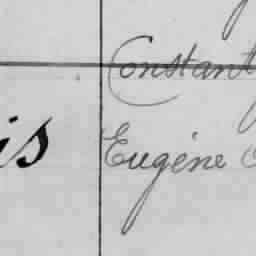 Constant
is Eugène